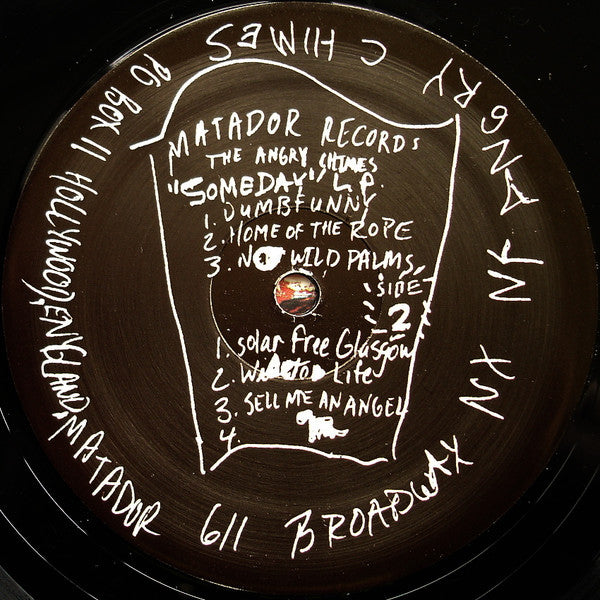 MATADOR RECORDS
THE ANGRY CHIMES
"SOMEDAY" L.P.
1. DUMBFUNNY
2. HOME OF THE ROPE
3. NOT WILD PALMS
SIDE
2
1. Solar Free Glasgow
2. Life
3. SELL ME AN ANGEL
4.
PO BOX 11 HOLLYWOOD, ENGLAND, MATADOR 611 BROADWAY NY NY ANGRY CHIMES